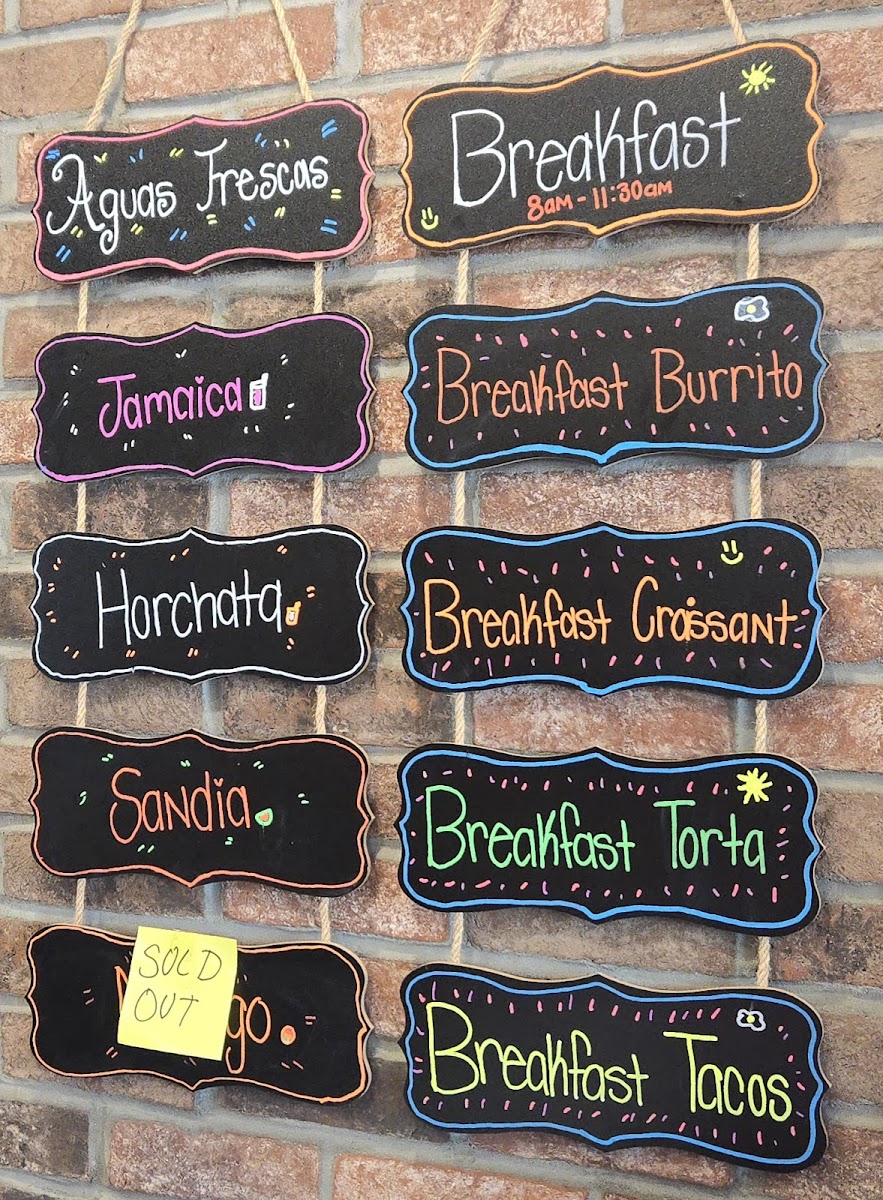 Aguas Frescas
Jamaica
Horchata
Sandia
SOLD
OUT
Breakfast
8am - 11:30am
Breakfast Burrito
Breakfast Croissant
Breakfast Torta
Breakfast Tacos